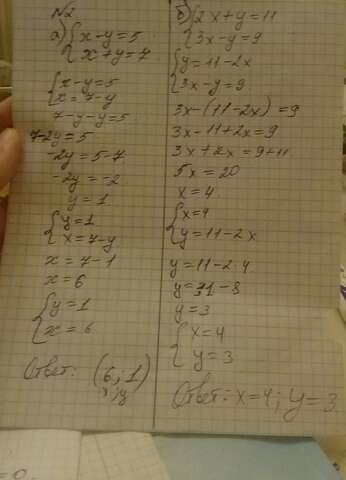 №2
а) {x-y=5
x+y=7
{x-y=5
x=7-y
7-y-y=5
7-2y=5
-2y=5-7
-2y=-2
y=1
{y=1
x=7-y
x=7-1
x=6
{y=1
x=6
Ответ: (6; 1)
x y
б) {2x+y=11
3x-y=9
{y=11-2x
3x-y=9
3x-(11-2x)=9
3x-11+2x=9
3x+2x=9+11
5x=20
x=4
{x=4
y=11-2x
y=11-2·4
y=11-8
y=3
{x=4
y=3
Ответ: x=4; y=3